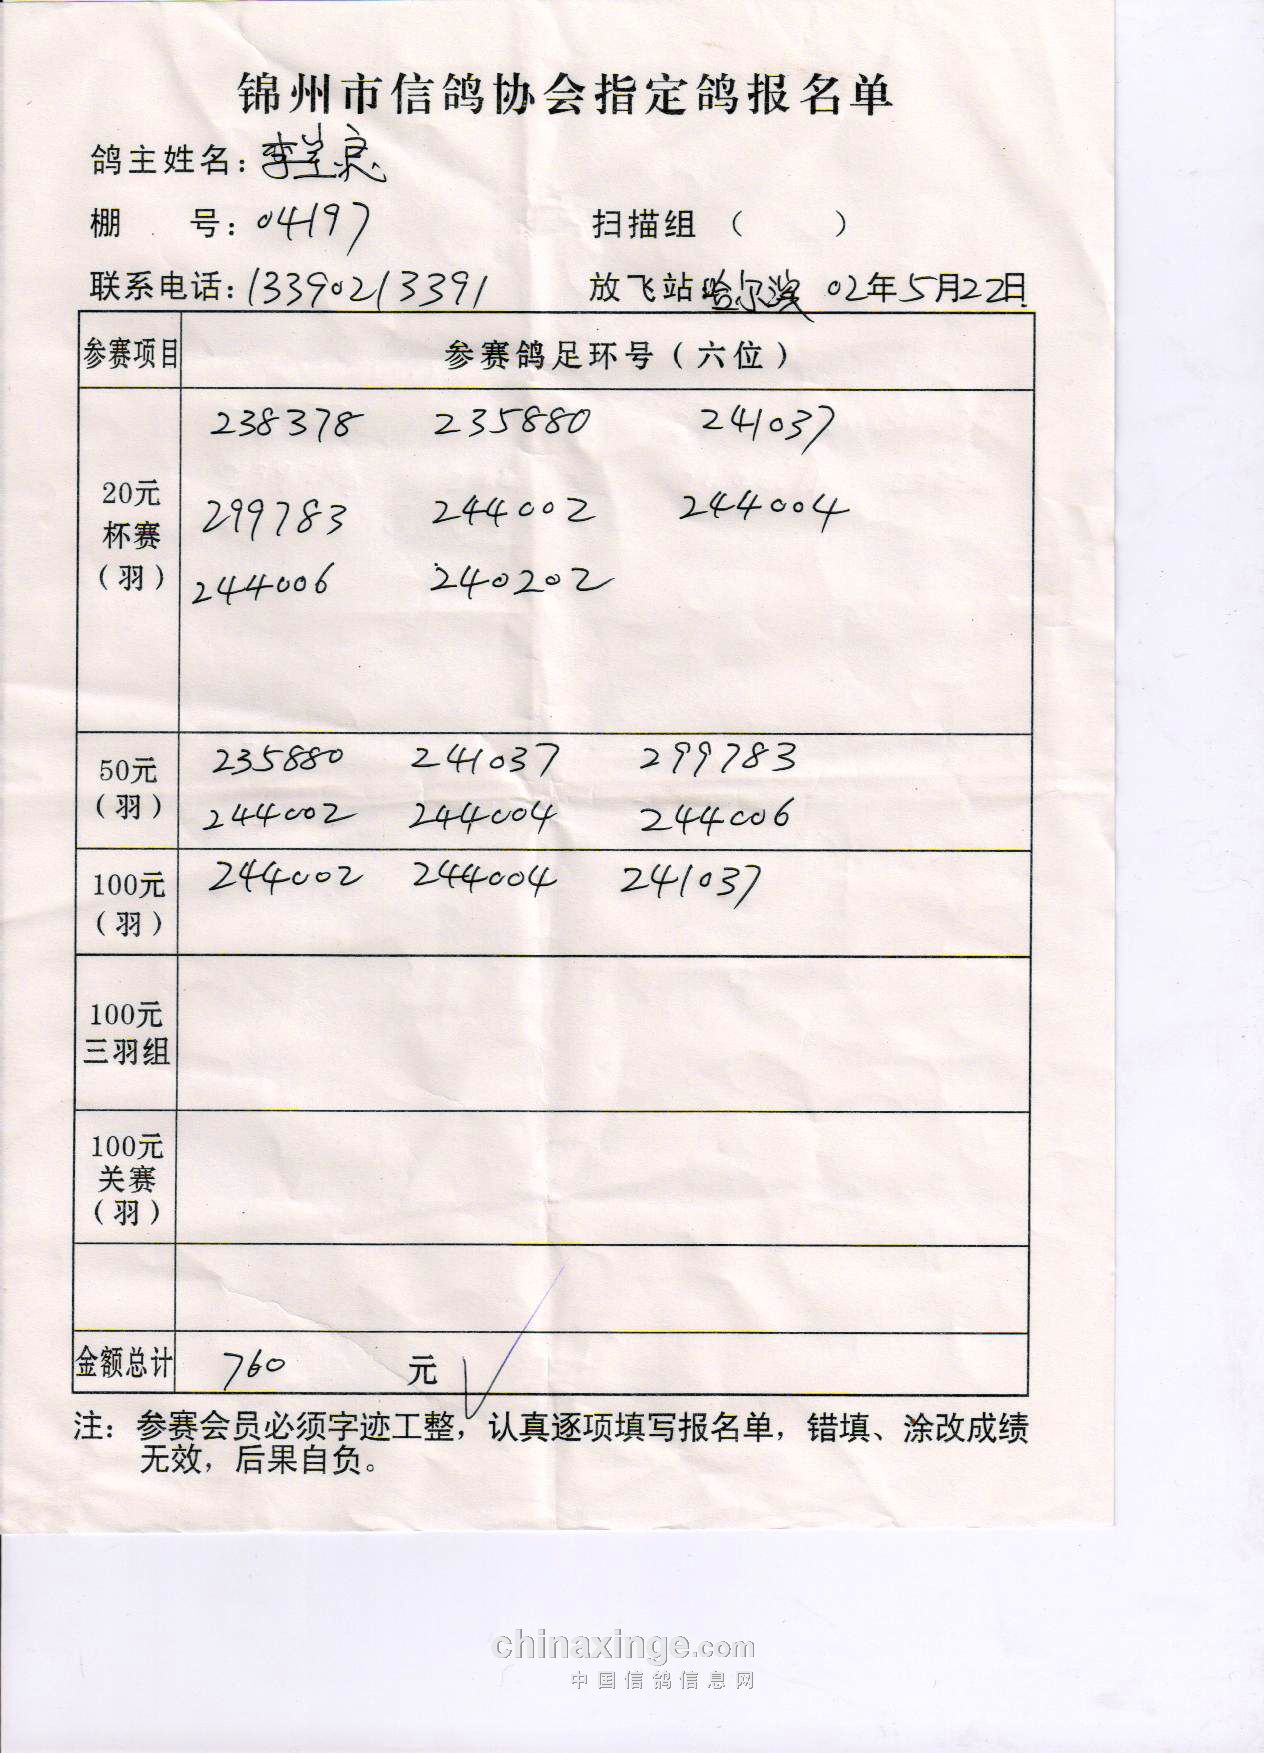 锦州市信鸽协会指定鸽报名单
鸽主姓名：李兰良
棚 号：04197 扫描组（ ）
联系电话：13390213391 放飞站 哈尔滨 02年5月22日
参赛项目 参赛鸽足环号（六位）
20元
杯赛
（羽）
238378 235880 241037
299783 244002 244004
244006 240202
50元
（羽）
235880 241037 299783
244002 244004 244006
100元
（羽）
244002 244004 241037
100元
三羽组
100元
关赛
（羽）
金额总计 760 元
注：参赛会员必须字迹工整，认真逐项填写报名单，错填、涂改成绩
无效，后果自负。
chinaxinge.com
中国信鸽信息网